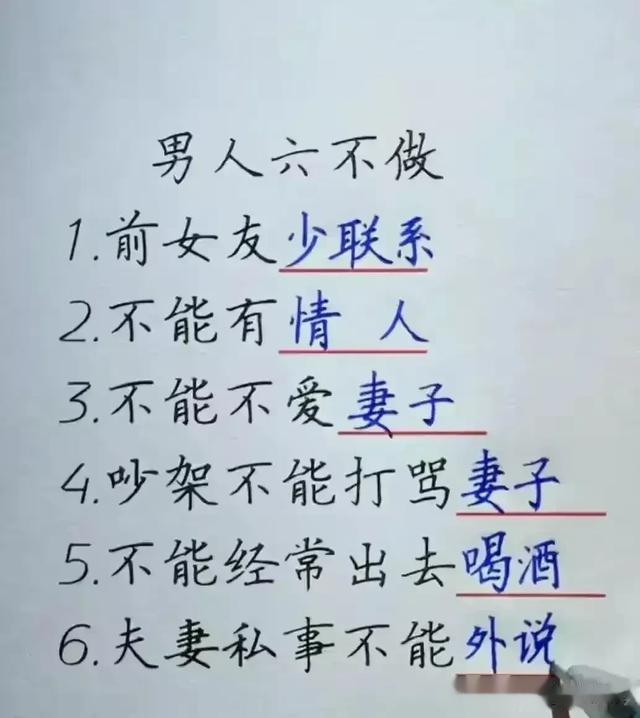 男人六不做
1.前女友少联系
2.不能有情 人
3.不能不爱妻子
4.吵架不能打骂妻子
5.不能经常出去喝酒
6.夫妻私事不能外说